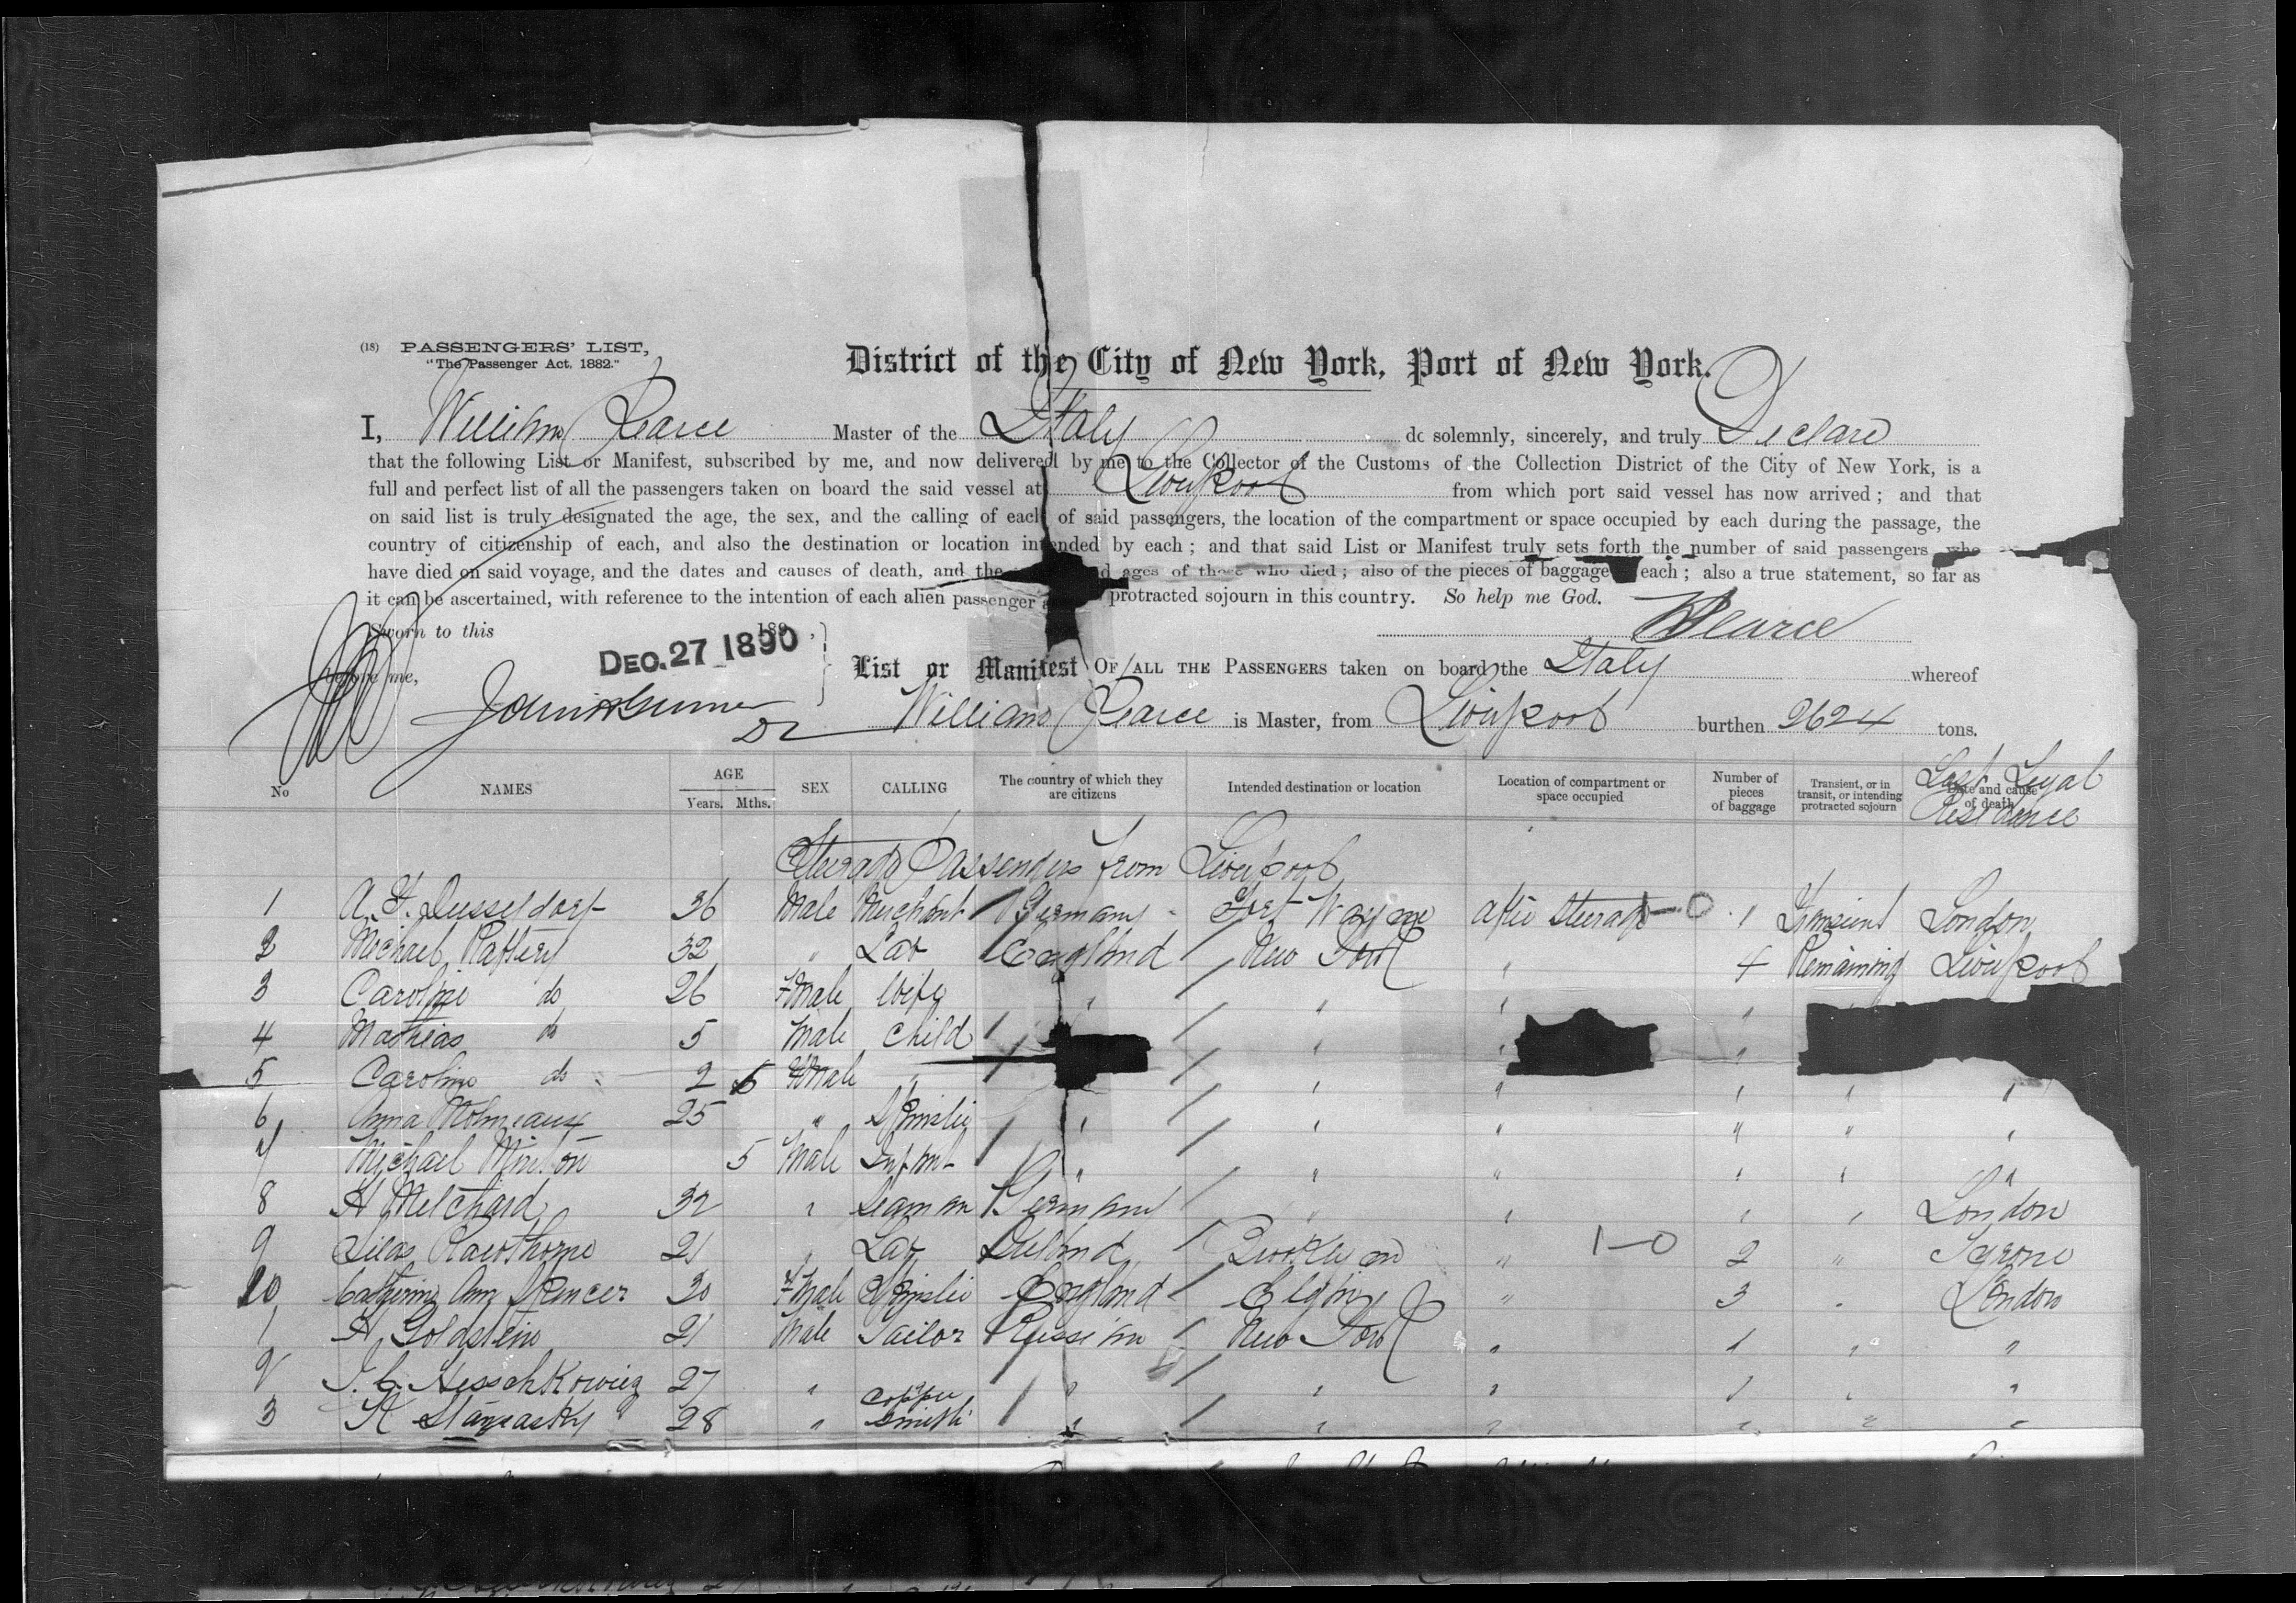 (18) PASSENGERS' LIST,
"The Passenger Act, 1882."
District of the City of New York, Port of New York.
I, William Pearce Master of the Italy do solemnly, sincerely, and truly Declare
that the following List or Manifest, subscribed by me, and now delivered by me to the Collector of the Customs of the Collection District of the City of New York, is a
full and perfect list of all the passengers taken on board the said vessel at Liverpool from which port said vessel has now arrived; and that
on said list is truly designated the age, the sex, and the calling of each of said passengers, the location of the compartment or space occupied by each during the passage, the
country of citizenship of each, and also the destination or location intended by each; and that said List or Manifest truly sets forth the number of said passengers who
have died on said voyage, and the dates and causes of death, and the ages of those who died; also of the pieces of baggage each; also a true statement, so far as
it can be ascertained, with reference to the intention of each alien passenger protracted sojourn in this country. So help me God.
Sworn to this 189 , WPearce
DEC. 27 1890
before me, List or Manifest OF ALL THE PASSENGERS taken on board the Italy whereof
William Pearce is Master, from Liverpool burthen 2624 tons.
No NAMES AGE Years. Mths. SEX CALLING The country of which they are citizens Intended destination or location Location of compartment or space occupied Number of pieces of baggage Transient, or in transit, or intending protracted sojourn Date and cause of death Last Legal Residence
Steerage Passengers from Liverpool
1 A. F. Dusseldorf 36 Male Merchant Germany Fort Wayne After Steerage 0 1 Transient London
2 Michael Raftery 32 " Lab England New York " 4 Remaining Liverpool
3 Caroline do 26 Fmale Wife " " " "
4 Mathias do 5 Male Child " " "
5 Caroline do 2 6 Fmale " " " " " "
6 Anna Molineaux 25 " Spinster " " " " " "
7 Michael Minton 5 Male Infant " " " " " "
8 H Melchard 32 " Seaman Germany " " " " London
9 Silas Rawsthorne 21 " Lab Ireland Brooklyn " 1-0 2 " Tyrone
10 Catherine Ann Spencer 30 Fmale Spinster England Elgin " 3 " London
1 H Goldstein 21 Male Tailor Russian New York " 1 " "
2 J. C. Hesschkowiez 27 " " " " 1 " "
3 K 28 " Copper Smith " " " " " "